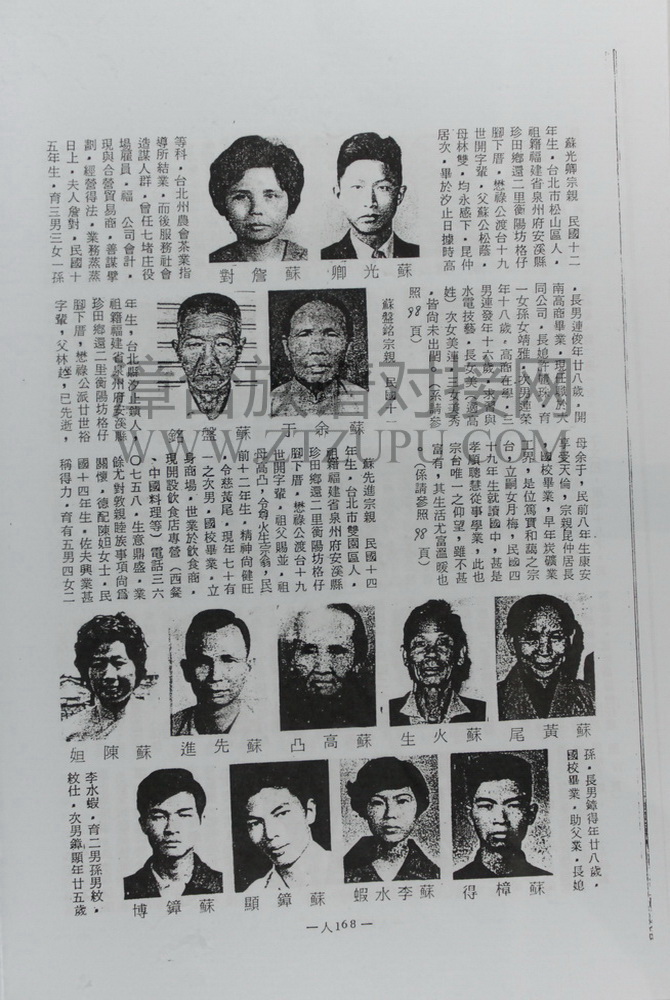 蘇光卿宗親・民國十二
年生・台北市松山區人・
祖籍福建省泉州府安溪縣
珍田鄉還二里衡陽坊格仔
腳下厝・懋祿公渡台十九
世開字輩・父蘇公松蔭・
母林雙・均永感下・昆仲
居次・畢於汐止日據時高
等科・台北州農會茶業指
導所結業・而後服務社會
造謀人群・曾任七堵庄役
場雇員・福 公司會計・
現與合營貿易商・善謀擘
劃・經營得法・業務蒸蒸
日上・夫人詹對・民國十
五年生・育三男三女一孫
蘇光卿
蘇詹對
・長男連俊年廿八歲・開
南高商畢業・現任職於大
同公司・長媳許 珠・育
一女孫女靖雅・次男連榮
年十八歲・高商在學・三
男連發年十六歲・求學與
水電技藝・長女美 適高
姓）次女美蓮・三女美秀
・皆尚未出閣・（系請參
照98頁）
蘇盤銘宗親・民國十一
年生・台北縣汐止鎮人・
祖籍福建省泉州府安溪縣
珍田鄉還二里衡陽坊格仔
腳下厝・懋祿公派廿世裕
字輩・父林越・已先逝・
蘇余于
蘇盤銘
母余于・民前八年生康安
享受天倫・宗親昆仲居長
・國校畢業・早年炭礦業
工界・是位篤實和藹之宗
台・立嗣女月梅・民國四
十九年生就讀國中・甚是
孝順聰慧從事學業・此也
宗台唯一之仰望・雖不甚
富有・其生活尤富溫暖也
・（係請參照98頁）
蘇先進宗親・民國十四
年生・台北市雙園區人・
祖籍福建省泉州府安溪縣
珍田鄉還二里衡陽坊格仔
腳下厝・懋祿公渡台十九
世開字輩・祖父賜並・祖
母高凸・令尊火生宗翁・民
前十二年生・精神尚健旺
・令慈黃尾・現年七十有
一之次男・國校畢業・立
身商場・世業於飲食商・
現開設飲食店專營（西餐
、中國料理等）電話三六
〇七五八・生意鼎盛・業
餘尤對敦親睦族事項尚為
關懷・德配陳妲女士・民
國十四年生・佐夫興業甚
稱得力・育有五男四女二
蘇黃尾
蘇火生
蘇高凸
蘇先進
蘇陳妲
孫・長男鐘得年廿八歲・
國校畢業・助父業・長媳
李水蝦・育二男孫男紋・
紋仕・次男鐘顯年廿五歲
蘇樟得
蘇李水蝦
蘇鐘顯
蘇鐘博
—人168—
章苗族谱对接网
WWW.ZTZUPU.COM